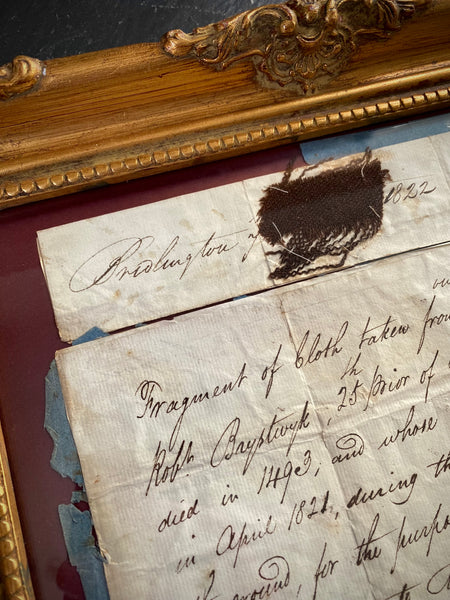 Bridlington 1822
Fragment of Cloth taken from
Robt. Brystwyk, 25th prior of
died in 1493, and whose
in April 1821, during the
ground, for the purpo